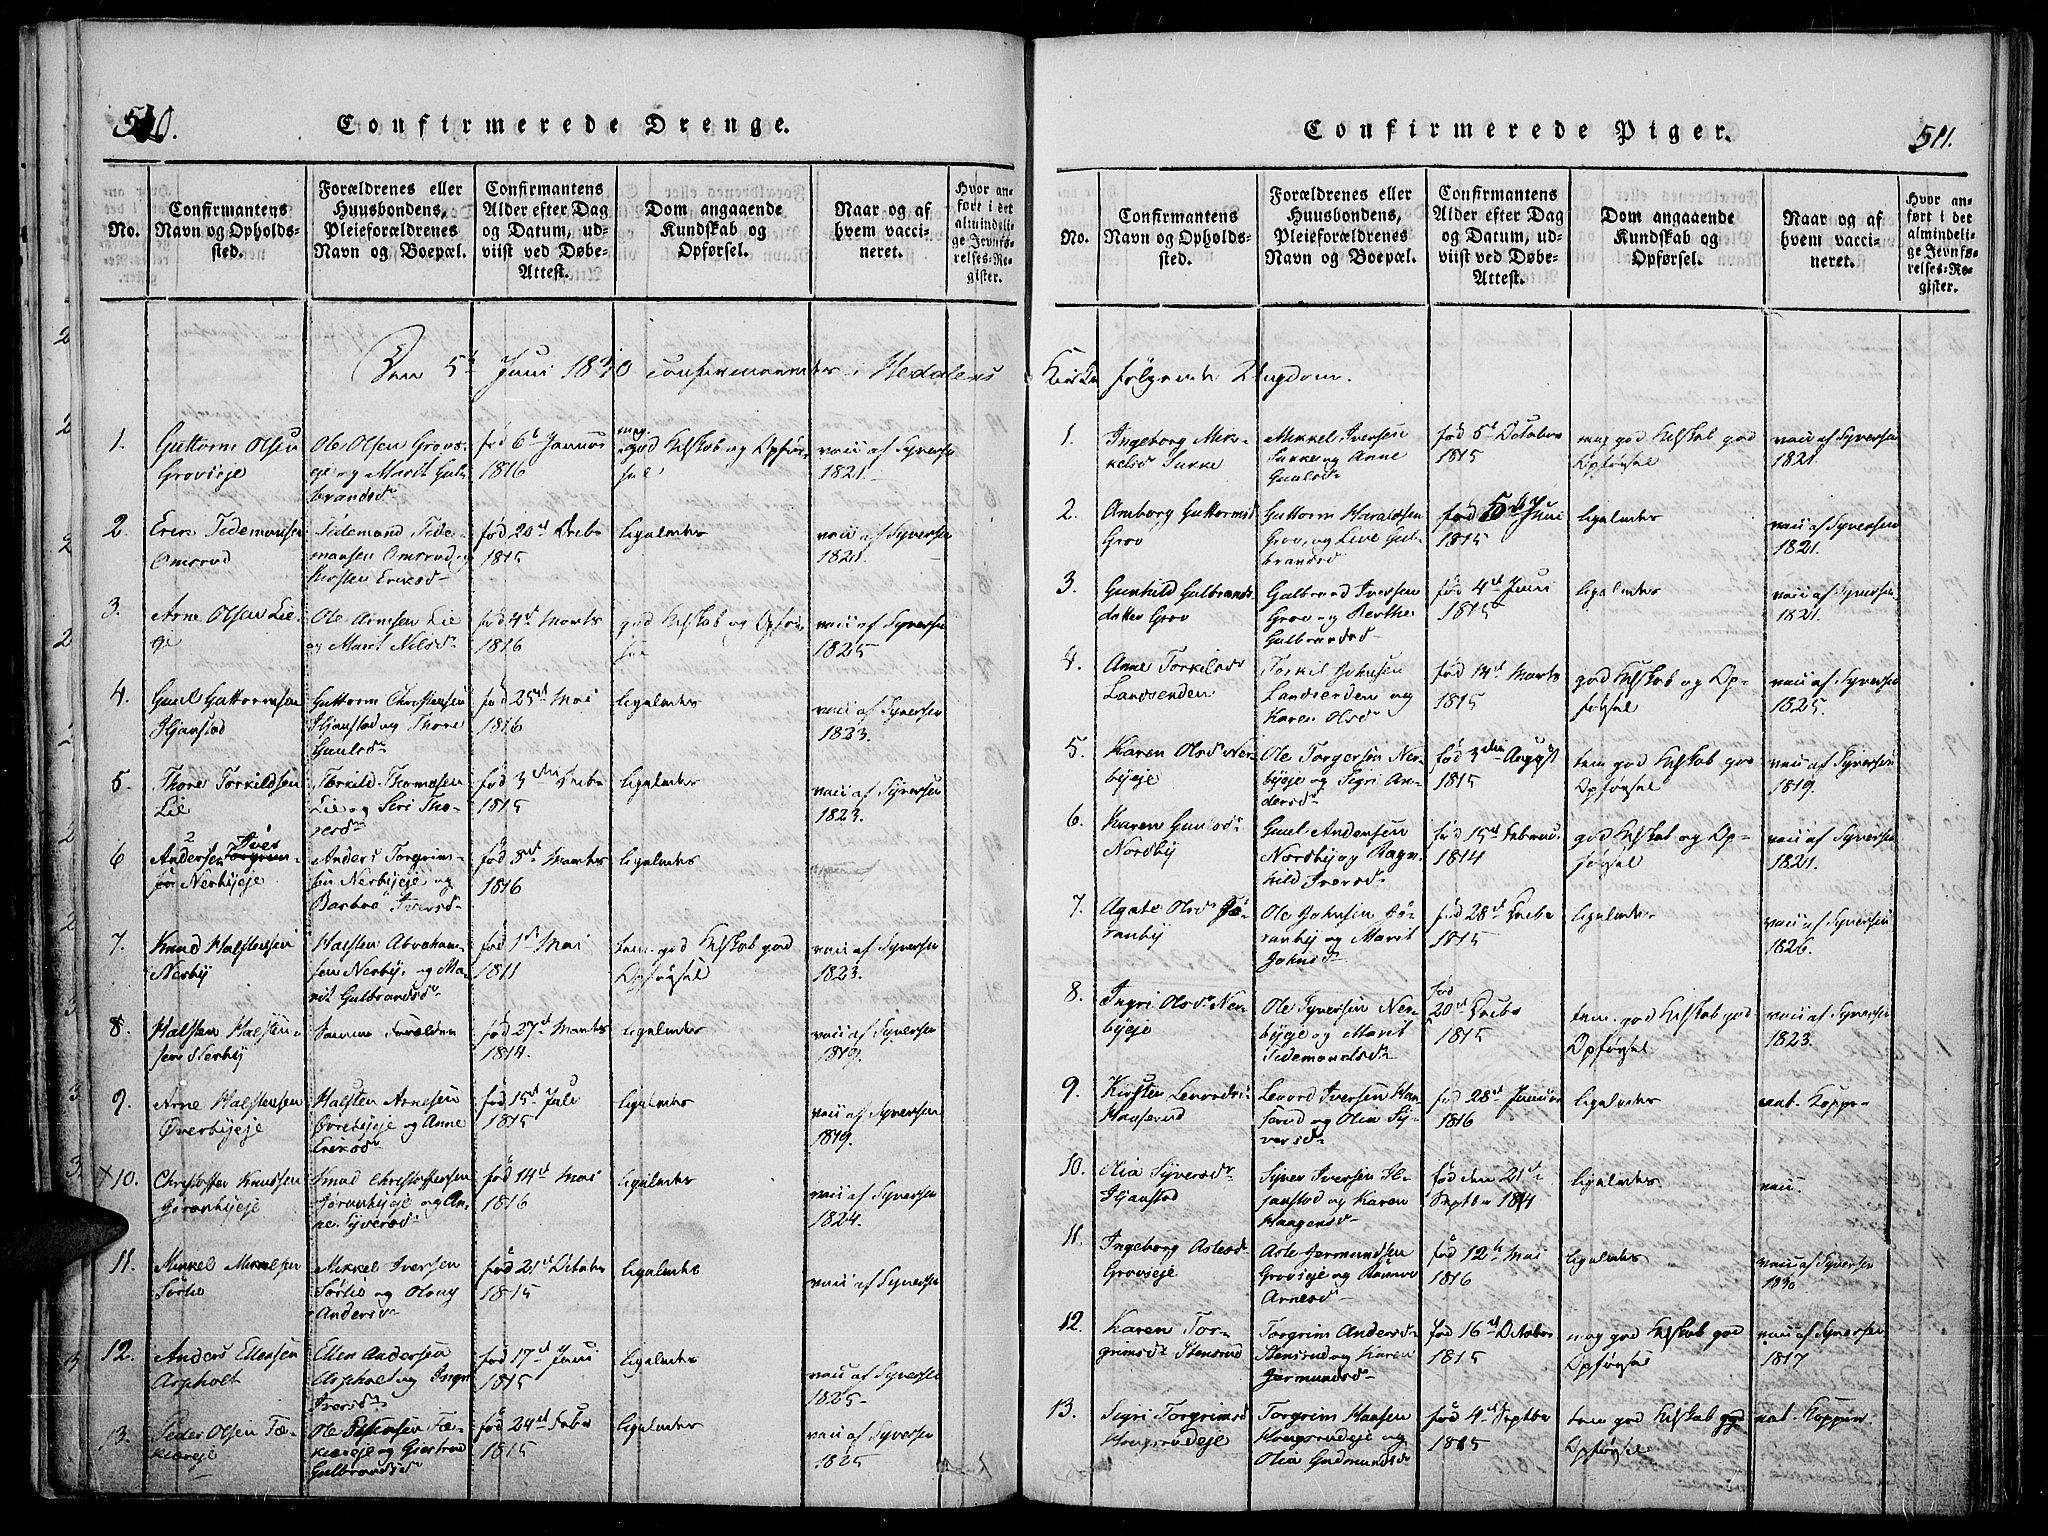 510.
Confirmerede Drenge.
No.
Confirmantens
Navn og Opholds-
sted.
Forældrenes eller
Huusbondens,
Pleieforældrenes
Navn og Boepæl.
Confirmantens
Alder efter Dag
og Datum, ud-
viist ved Døbe-
Attest.
Dom angaaende
Kundskab og
Opførsel.
Naar og af
hvem vacci-
neret.
Hvor an-
ført i det
almindeli-
ge Jevnfø-
relses-Re-
gister.
Den 5te Juni 1830 confirmeredes i Hedalens
1.
Guttorm Olsen
Grovseje
Ole Olsen Grovs-
eje og Marit Gul-
brandsd
født 6te Januar
1816
meg.
god Kdskab og Opfør-
sel
vacc af Syversen
1821.
2.
Eric Tidemansen
Omsrud
Tidemand Tide-
mansen Omsrud og
Kirsten Ericsd
født 20de Decbr
1815
ligeledes
vacc af Syversen
1821.
3.
Arne Olsen Lie-
eje
Ole Arnesen Lie
og Marit Nilsd
født 4de Marts
1816
god Kdskab og Opfør-
sel
vacc af Syversen
1825
4.
Guul Guttormsen
Hjanstad
Guttorm Christensen
Hjanstad og Thore
Guulsd
født 25de Mai
1816
ligeledes
vacc af Syversen
1823.
5
Thore Torkildsen
Lie
Torkild Thomasen
Lie og Siri Tho-
resd
født 3die Decbr
1815
ligeledes
vacc af Syversen
1823.
6
Anders
Nerbyeje
Anders Torgrim-
sen Nerbyeje og
Barbro Iversd
født 8de Marts
1816
ligeledes
7.
Knud Halstensen
Nerby
Halsten Abraham-
sen Nerby, og Ma-
rit Gulbrandsd
født 1ste Mai
1811
tem. god Kdskab god
Opførsel
vacc af Syversen
1823.
8.
Halsten Halsten-
sen Nerby
Samme Forældre
født 27de Marts
1814.
ligeledes
vacc af Syversen
1819.
9.
Arne Halstensen
Øverbyeje
Halsten Arnesen
Øvrebyeje og Anne
Ericsd
født 15de Juli
1815
ligeledes
vacc af Syversen
1819.
×10.
Christoffer Knudsen
Goranbyeje
Knud Christoffersen
Jøranbyeje og An-
ne Syversd
født 14de Mai
1816
ligeledes
vacc af Syversen
1824.
11.
Mikkel Mikkelsen
Sørlie
Mikkel Iversen
Sørlie og Oloug
Andersd
født 21de October
1815
ligeledes
vacc af Syversen
12.
Anders Ellensen
Aspholt
Ellen Andersen
Aspholt og Ingri
Iversd
født 17de Juni
1815
ligeledes
vacc af Syversen
1825.
13.
Peder Olsen
Ole Pedersen
Gulbrandsd
født 24de Febr
1815
ligeledes
vacc af Syversen
1825
511.
Confirmerede Piger.
No.
Confirmantens
Navn og Opholds-
sted.
Forældrenes eller
Huusbondens,
Pleieforældrenes
Navn og Boepæl.
Confirmantens
Alder efter Dag
og Datum, ud-
viist ved Døbe-
Attest.
Dom angaaende
Kundskab og
Opførsel.
Naar og af
hvem vacci-
neret.
Hvor an-
ført i det
almindeli-
ge Jevnfø-
relses-Re-
gister.
Kirke følgende Ungdom.
1.
Ingeborg Mik-
kelsd Surke
Mikkel Iversen
Surke og Anne
Guulsd
født 5te October
1815
meg god Kdskab god
Opførsel
vacc af Syversen
1821.
2.
Amborg Guttormsd
Grov
Guttorm Haraldsen
Grov, og Live Gul-
brandsd
født 5te Juni
1815
ligeledes
vacc af Syversen
1821.
3.
Gunhild Gulbrands-
datter Grov
Gulbrand Iversen
Grov og Berthe
Gulbrandsd
født 4de Juni
1815
ligeledes
vacc af Syversen
1821.
4.
Anne Torkilsd
Landsenden
Torkil Johnsen
Landsenden og
Karen Olsd
født 14de Marts
1815
god Kdskab og Op-
førsel
vacc af Syversen
1825.
5.
Karen Olsd Ner-
byeje
Ole Torgersen Ner-
byeje og Sigri An-
dersd
født 3die August
1815
tem god Kdskab god
Opførsel
vacc af Syversen
1819.
6.
Karen Guulsd
Nordby
Guul Andersen
Nordby og Ragn-
hild Iversd
født 15de Februar
1814
god Kdskab og Op-
førsel
vacc af Syversen
1821.
7.
Agate Olsd Jø-
ranby
Ole Johnsen Jø-
ranby og Marit
Johnsd
født 28de Decbr
1815
ligeledes
vacc af Syversen
1826.
8.
Ingri Olsd Ner-
byeje
Ole Syversen Ner-
byeje og Marit
Tidemandsd
født
20de Decbr
1815
tem. god Kdskab god
Opførsel
vacc af Syversen
1823.
9.
Kirsten Levordsd
Haaserud
Levord Iversen Haa-
serud og Olia Sy-
versd
født 28de Januar
1816
ligeledes
nat. Kopper
10.
Olia Syversd
Hjanstad
Syver Iversen Hj-
anstad og Karen
Haagensd
født den 21de
Septbr 1814
ligeledes
vacc.
11.
Ingeborg Aslesd
Grovseje
Asle Germundsen
Grovseje og Rønnou
Arnesd
født 12te Mai
1816
ligeledes
vacc af Syversen
1830
12.
Karen Tor-
grimsd Stensrud
Torgrim Andersen
Stensrud og Karen
Germundsd
født 16de October
1815
meg god Kdskab god
Opførsel
vacc af Syversen
1817
13.
Sigri Torgrimsd
Hougsrudeje
Torgrim Hansen
Hougsrudeje og
Olia Gudmundsd
født 4de Septbr
1815
tem god Kdskab god
Opførsel
nat. Kopper